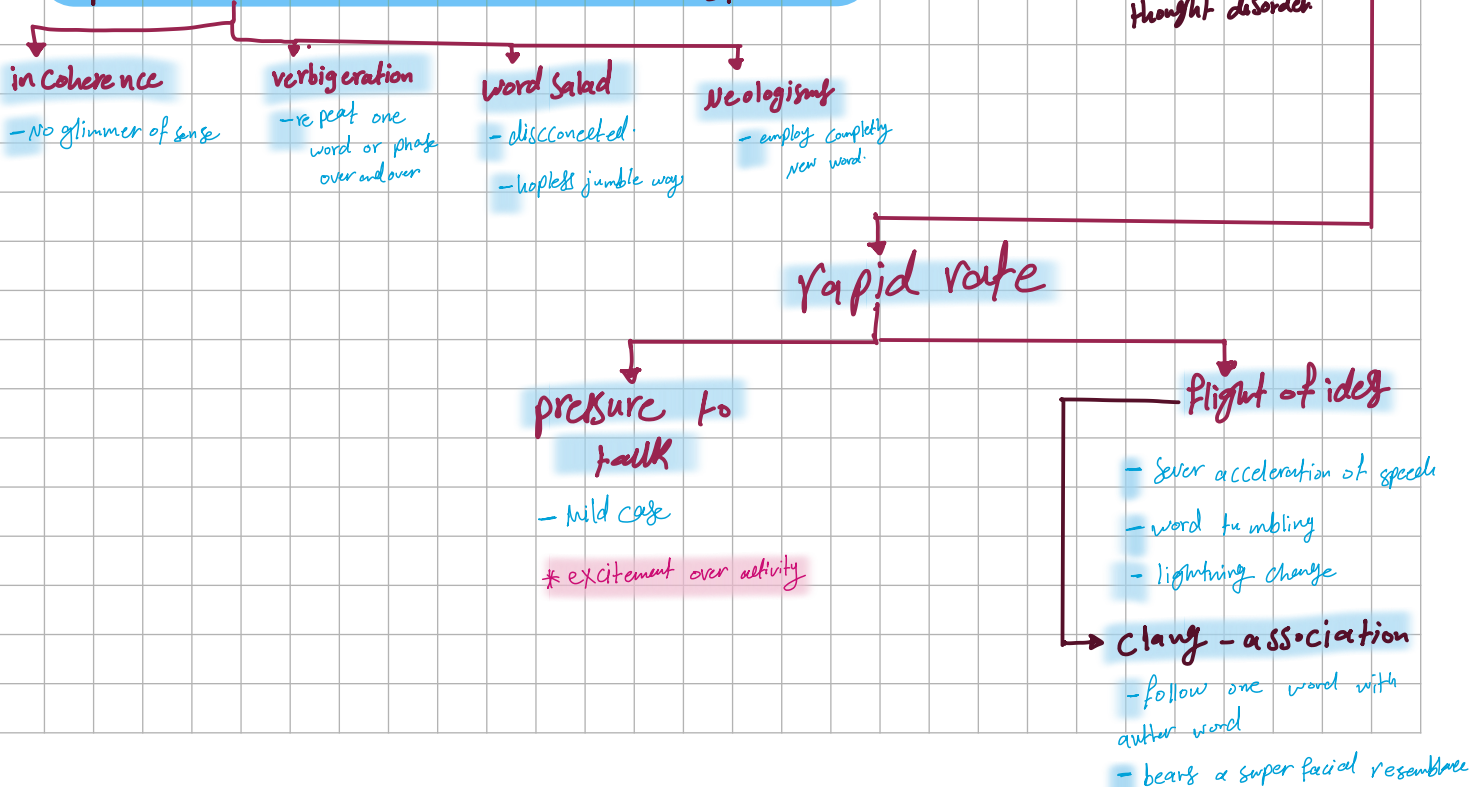 thought disorder
incoherence
- No glimmer of sense
verbigeration
- repeat one
word or phase
over and over
word salad
- discconceted.
- hopless jumble way
Neologismf
- employ completly
new word.
rapid rate
pressure to
tallk
- Mild case
* excitement over activity
flight of ides
- Sever acceleration of speech
- word tumbling
- lightning change
Clang - association
- follow one word with
auther word
- bears a super facial resemblance